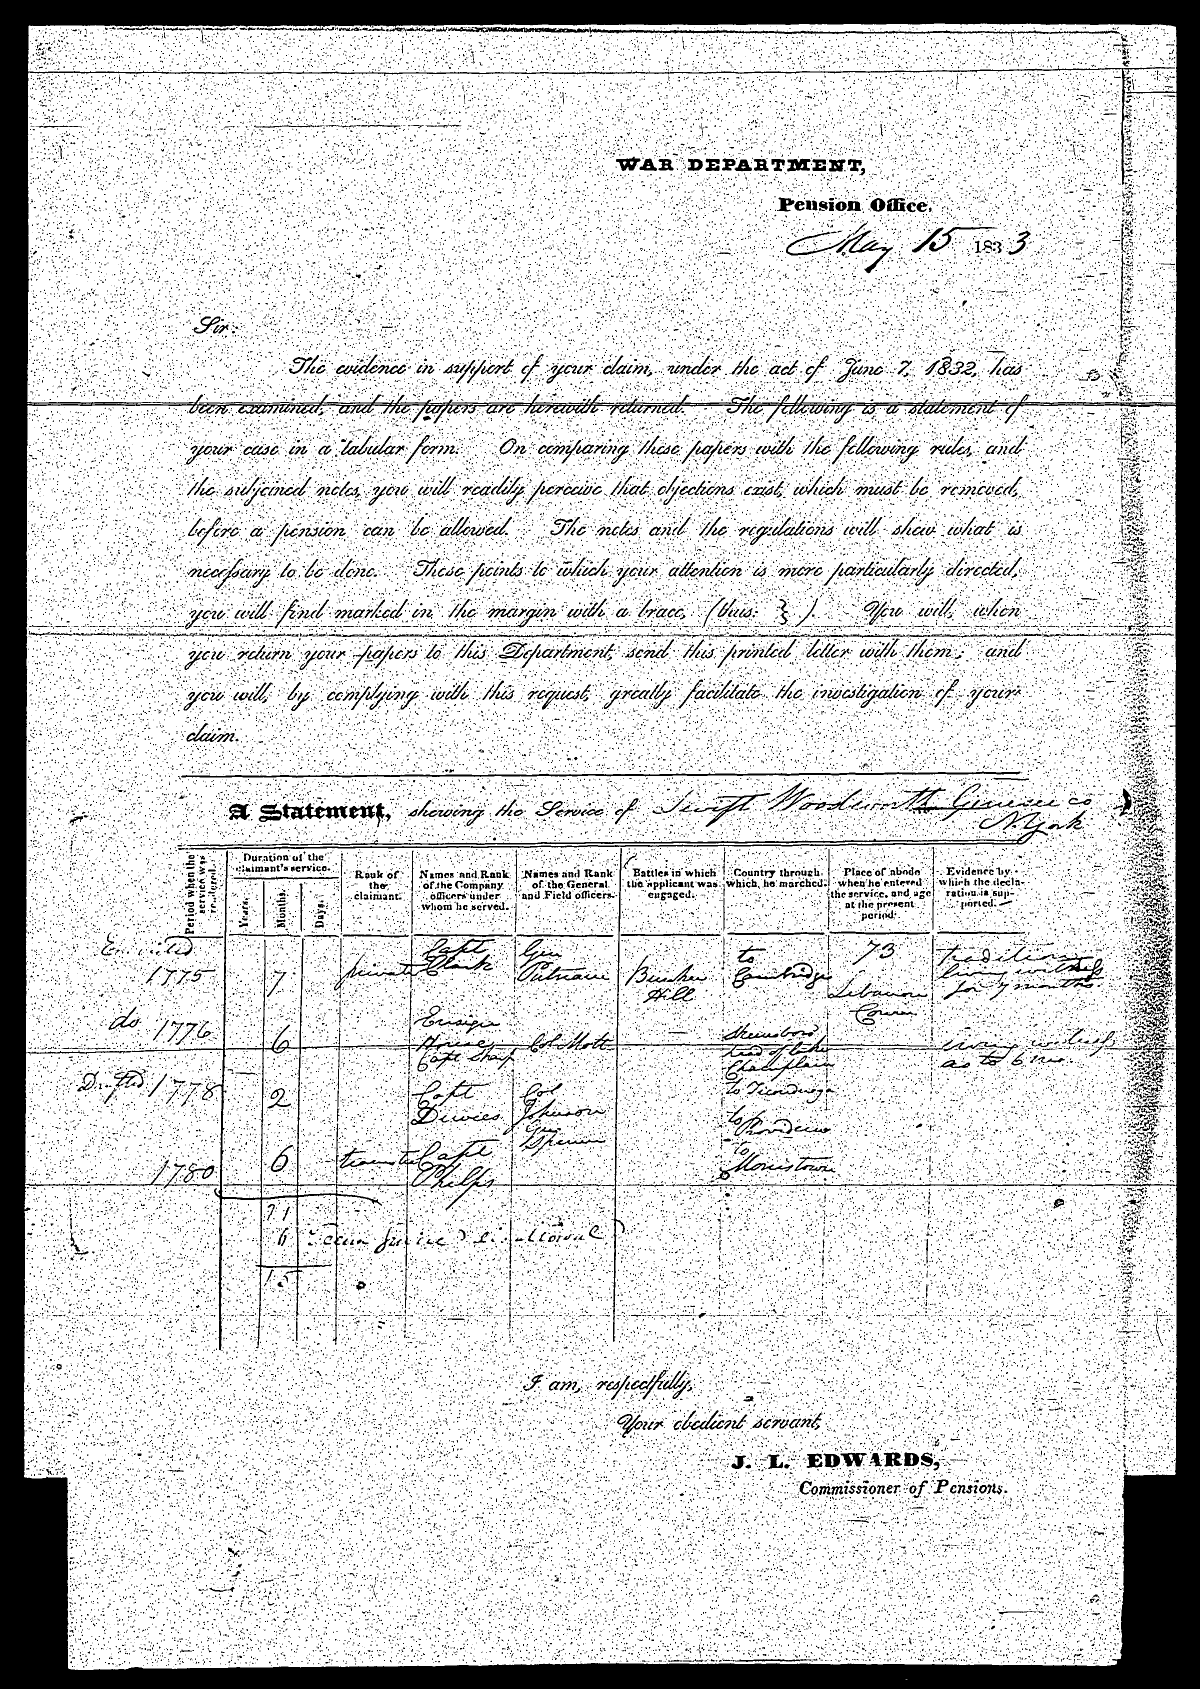 WAR DEPARTMENT,
Pension Office.
May 15 1833
Sir:
The evidence in support of your claim, under the act of June 7, 1832, has
been examined, and the papers are herewith returned. The following is a statement of
your case in a tabular form. On comparing these papers with the following rules, and
the subjoined notes, you will readily perceive that objections exist, which must be removed,
before a pension can be allowed. The notes and the regulations will shew what is
necessary to be done. Those points to which your attention is more particularly directed,
you will find marked in the margin with a brace, (thus: } ). You will, when
you return your papers to this Department, send this printed letter with them; and
you will, by complying with this request, greatly facilitate the investigation of your
claim.
A Statement, shewing the Service of Swift Woodworth Genesee co
N. York
Period when the service was rendered.
Duration of the claimant's service.
Years.
Months.
Days.
Rank of the claimant.
Names and Rank of the Company officers under whom he served.
Names and Rank of the General and Field officers.
Battles in which the applicant was engaged.
Country through which he marched.
Place of abode when he entered the service, and age at the present period.
Evidence by which the declaration is supported.
Enlisted 1775 7 private Capt Clark Gen Putnam Bunker Hill to Cambridge 73 Lebanon Conn traditionary living witness for 7 months.
do 1776 6 Ensign House Capt Sharp Col Mott — Skeensboro head of lake Champlain to Ticonderoga living witness as to 6 mo
Drafted 1778 2 Capt Dewees Col Johnson Gen Spencer to Providence
1780 6 teamster Capt Phelps to Morristown
21
6 Team service
15
I am, respectfully,
Your obedient servant,
J. L. EDWARDS,
Commissioner of Pensions.